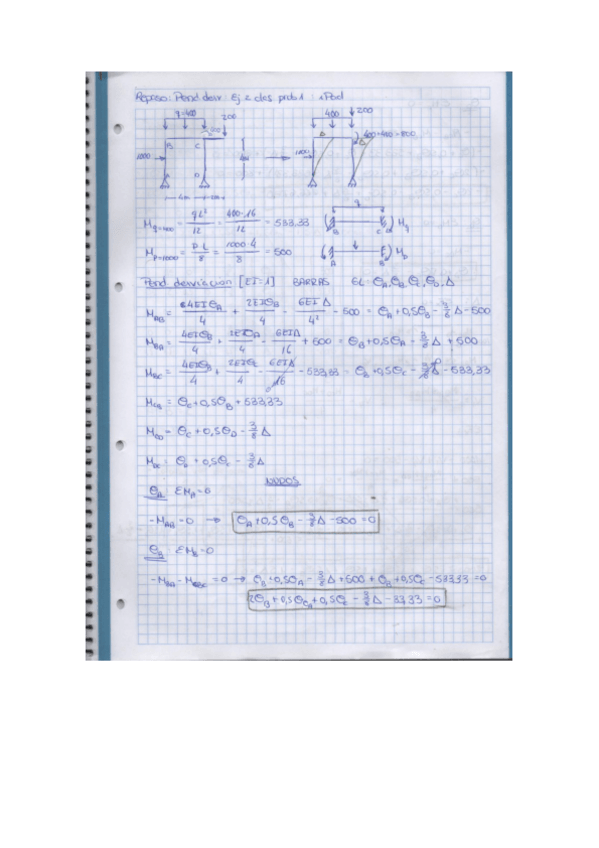 Repaso: Pend desv. Ej 2 clas prob 1
q=400 200
400 200
1000 B C 4m
1000 Δ 400+400=800
A D
4m
M q=400 = qL²/12 = 400·16/12 = 533,33
q
B C Mq
M P=1000 = P·L/8 = 1000·4/8 = 500
A B Mp
Pend desviacion [EI=1] BARRAS GL: θA, θB, θC, θD, Δ
MAB = 4EIθA/4 + 2EIθB/4 - 6EIΔ/4² - 500 = θA + 0,5θB - 3/8 Δ - 500
MBA = 4EIθB/4 + 2EIθA/4 - 6EIΔ/16 + 500 = θB + 0,5θA - 3/8 Δ + 500
MBC = 4EIθB/4 + 2EIθC/4 - 6EIΔ/16 - 533,33 = θB + 0,5θC - 3/8 Δ - 533,33
MCB = θC + 0,5θB + 533,33
MCD = θC + 0,5θD - 3/8 Δ
MDC = θD + 0,5θC - 3/8 Δ
NODOS
θA ΣMA=0
-MAB=0 → θA + 0,5θB - 3/8 Δ - 500 = 0
θB ΣMB=0
-MBA - MBC = 0 → θB + 0,5θA - 3/8 Δ + 500 + θB + 0,5θC - 533,33 = 0
2θB + 0,5θA + 0,5θC - 3/8 Δ - 33,33 = 0